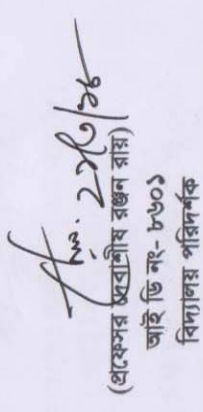 ২১/৩/১৮
(প্রফেসর দেবাশীষ রঞ্জন রায়)
আই ডি নং- ৮৬০১
বিদ্যালয় পরিদর্শক